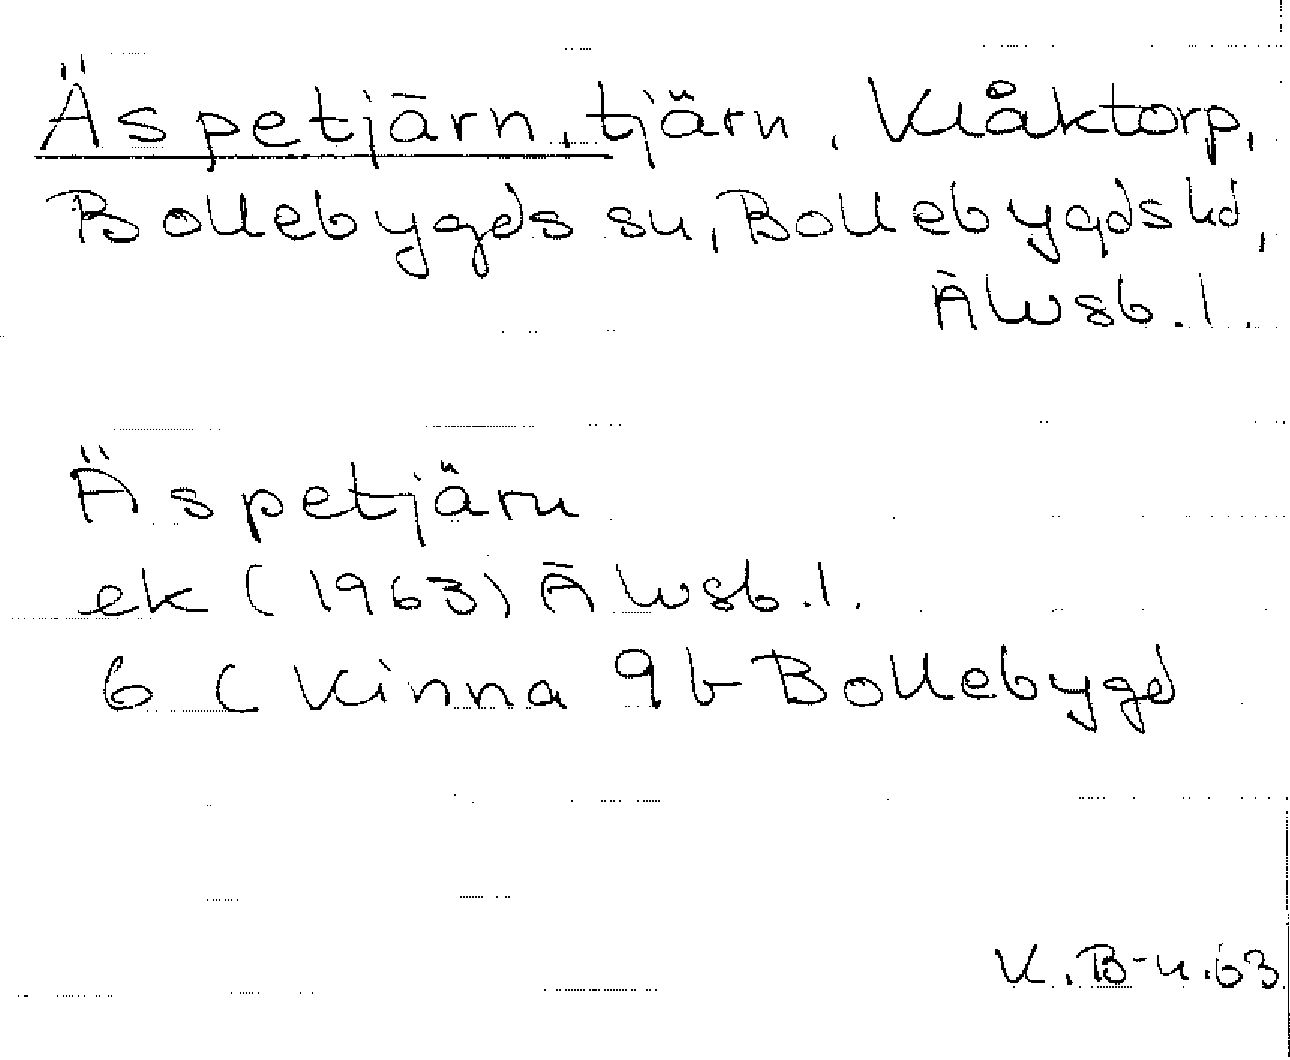 Äspetjärn, tjärn, Klåktorp,
Bollebygds sn, Bollebygds hd,
Älvsb. l.
Äspetjärn
ek (1963) Älvsb. l.
6 C Kinna 9 b Bollebygd
K. B-n. 63